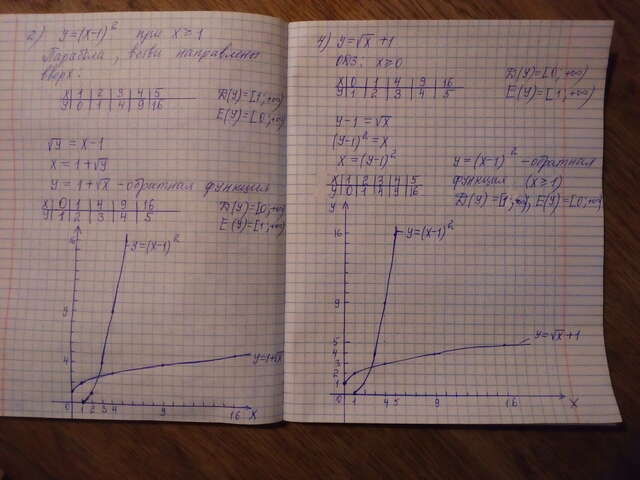 2) y=(x-1)² при x≥1
Парабола, ветви направлены
вверх.
x | 1 | 2 | 3 | 4 | 5
y | 0 | 1 | 4 | 9 | 16
D(y)=[1;+∞)
E(y)=[0;+∞)
√y = x-1
x = 1+√y
y = 1+√x - обратная функция
x | 0 | 1 | 4 | 9 | 16
y | 1 | 2 | 3 | 4 | 5
D(y)=[0;+∞)
E(y)=[1;+∞)
y=(x-1)²
y=1+√x
16
9
4
0 1 2 3 4 9 16 x
4) y=√x +1
ОДЗ: x≥0
x | 0 | 1 | 4 | 9 | 16
y | 1 | 2 | 3 | 4 | 5
D(y)=[0;+∞)
E(y)=[1;+∞)
y-1=√x
(y-1)²=x
x=(y-1)²
y=(x-1)² - обратная
функция (x≥1)
x | 1 | 2 | 3 | 4 | 5
y | 0 | 1 | 4 | 9 | 16
D(y)=[1;+∞), E(y)=[0;+∞)
y
y=(x-1)²
y=√x+1
16
9
5
4
3
2
1
0 1 4 5 9 16 x